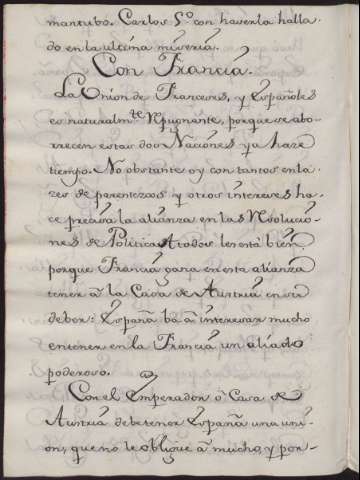 mantubo. Carlos 5.º con haverla halla-
do en la ultima miseria.
Con Francia.
La Union de Franceses, y Españoles
es naturalm.te Repugnante, porque se abo-
rrecen estas dos Naciones ya haze
tiempo. No obstante oy con tantos enla-
zes de parentezcos y otros intereses ha-
ce precisa la alianza en las Resolucio-
nes de Politica. A todos les està bien,
porque Francia gana en esta alianza
tener à la Casa de Austria en su
deber: España bà à interesar mucho
en tener en la Francia un aliado
poderoso.
Con el Emperador ò Casa de
Austria debe tener España una uni-
on, que no le obligue à mucho, y por-